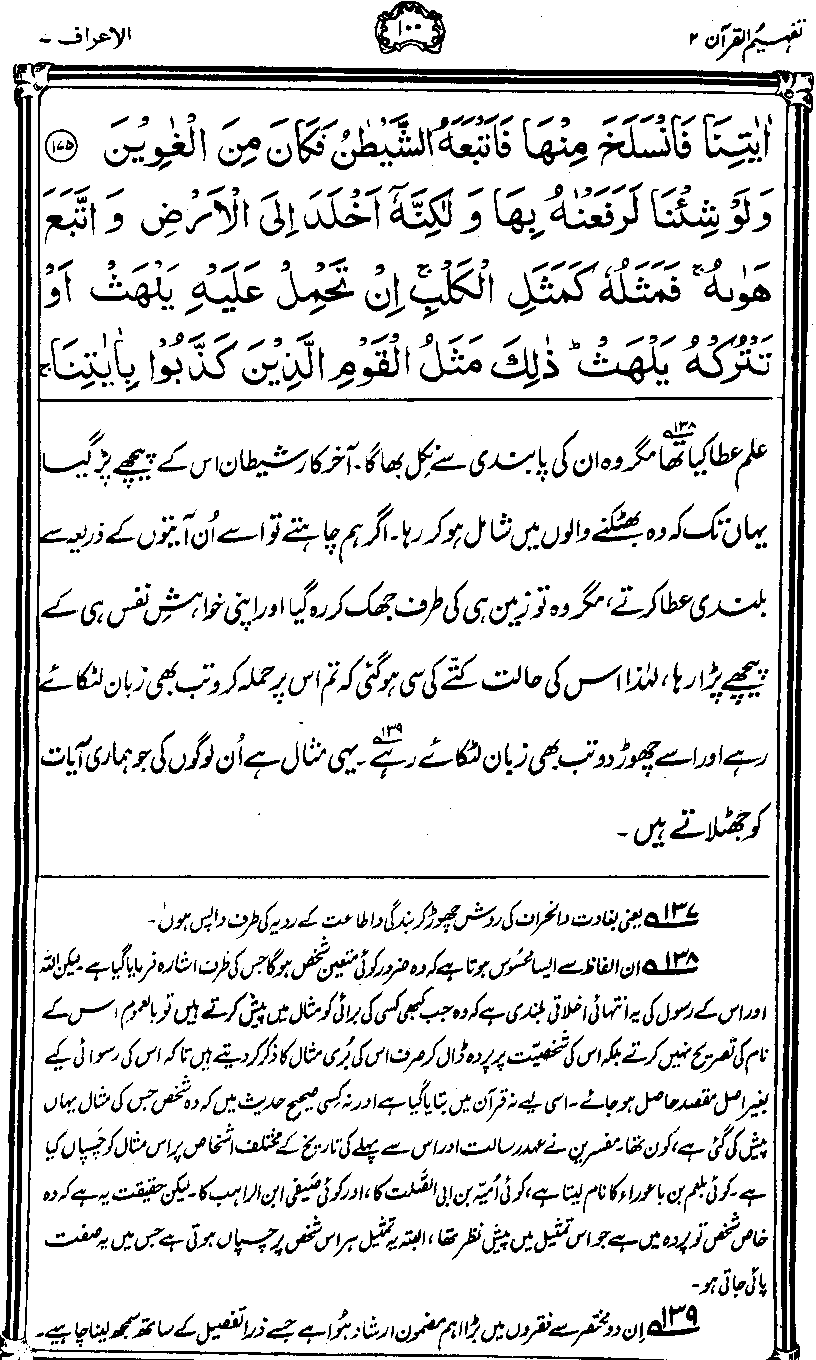 تفہیم القرآن ۲
۱۰۰
الاعراف ۷
اٰیٰتِنَا فَانْسَلَخَ مِنْهَا فَاَتْبَعَهُ الشَّیْطٰنُ فَكَانَ مِنَ الْغٰوِیْنَ ۱۷۵
وَلَوْ شِئْنَا لَرَفَعْنٰهُ بِهَا وَ لٰكِنَّهٗۤ اَخْلَدَ اِلَی الْاَرْضِ وَ اتَّبَعَ
هَوٰىهُ ۚ فَمَثَلُهٗ كَمَثَلِ الْكَلْبِ ۚ اِنْ تَحْمِلْ عَلَیْهِ یَلْهَثْ اَوْ
تَتْرُكْهُ یَلْهَثْ ؕ ذٰلِكَ مَثَلُ الْقَوْمِ الَّذِیْنَ كَذَّبُوْا بِاٰیٰتِنَا ۚ
علم عطا کیا تھا ۱۳۸ مگر وہ ان کی پابندی سے نکل بھاگا۔ آخر کار شیطان اس کے پیچھے پڑ گیا
یہاں تک کہ وہ بھٹکنے والوں میں شامل ہو کر رہا۔ اگر ہم چاہتے تو اسے اُن آیتوں کے ذریعہ سے
بلندی عطا کرتے، مگر وہ تو زمین ہی کی طرف جھک کر رہ گیا اور اپنی خواہشِ نفس ہی کے
پیچھے پڑا رہا، لہٰذا اس کی حالت کتّے کی سی ہو گئی کہ تم اس پر حملہ کرو تب بھی زبان لٹکائے
رہے اور اسے چھوڑ دو تب بھی زبان لٹکائے رہے ۱۳۹۔ یہی مثال ہے اُن لوگوں کی جو ہماری آیات
کو جھٹلاتے ہیں۔
۱۳۷ یعنی بغاوت و انحراف کی روش چھوڑ کر بندگی و اطاعت کے رویہ کی طرف واپس ہوں۔
۱۳۸ ان الفاظ سے ایسا محسُوس ہوتا ہے کہ وہ ضرور کوئی متعین شخص ہوگا جس کی طرف اشارہ فرمایا گیا ہے۔ لیکن اللہ
اور اس کے رسول کی یہ انتہائی اخلاقی بلندی ہے کہ وہ جب کبھی کسی کی برائی کو مثال میں پیش کرتے ہیں تو بالعموم اس کے
نام کی تصریح نہیں کرتے بلکہ اس کی شخصیّت پر پردہ ڈال کر صرف اس کی بُری مثال کا ذکر کر دیتے ہیں تاکہ اس کی رسوائی کیے
بغیر اصل مقصد حاصل ہو جائے۔ اسی لیے نہ قرآن میں بتایا گیا ہے اور نہ کسی صحیح حدیث میں کہ وہ شخص جس کی مثال یہاں
پیش کی گئی ہے، کون تھا۔ مفسرین نے عہدِ رسالت اور اس سے پہلے کی تاریخ کے مختلف اشخاص پر اس مثال کو چسپاں کیا
ہے۔ کوئی بلعم بن باعوراء کا نام لیتا ہے، کوئی اُمیّہ بن ابی الصَّلت کا، اور کوئی صَیفی ابن الراہب کا۔ لیکن حقیقت یہ ہے کہ وہ
خاص شخص تو پردہ میں ہے جو اس تمثیل میں پیش نظر تھا، البتہ یہ تمثیل ہر اس شخص پر چسپاں ہوتی ہے جس میں یہ صفت
پائی جاتی ہو۔
۱۳۹ اِن دو مختصر سے فقروں میں بڑا اہم مضمون ارشاد ہُوا ہے جسے ذرا تفصیل کے ساتھ سمجھ لینا چاہیے۔